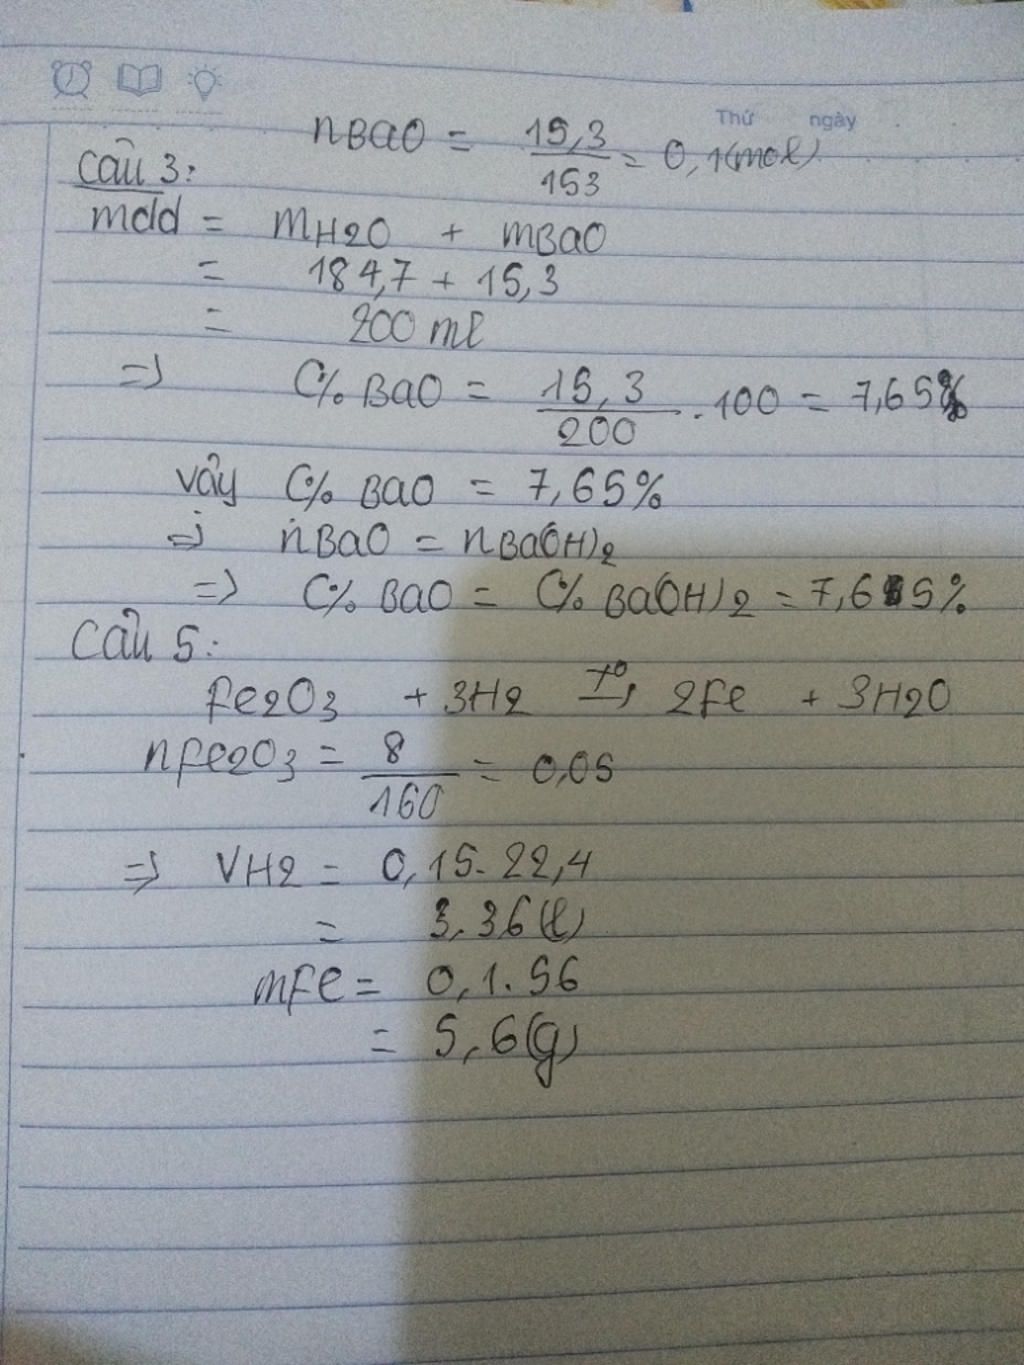 Thứ ngày
nBaO = 15,3/153 = 0,1(mol)
Câu 3:
mdd = mH2O + mBaO
= 184,7 + 15,3
= 200 ml
=> C% BaO = 15,3/200 . 100 = 7,65%
vậy C% BaO = 7,65%
=> nBaO = nBa(OH)2
=> C% BaO = C% Ba(OH)2 = 7,65%
Câu 5:
Fe2O3 + 3H2 t° → 2Fe + 3H2O
nFe2O3 = 8/160 = 0,05
=> VH2 = 0,15. 22,4
= 3,36(l)
mFe = 0,1.56
= 5,6(g)